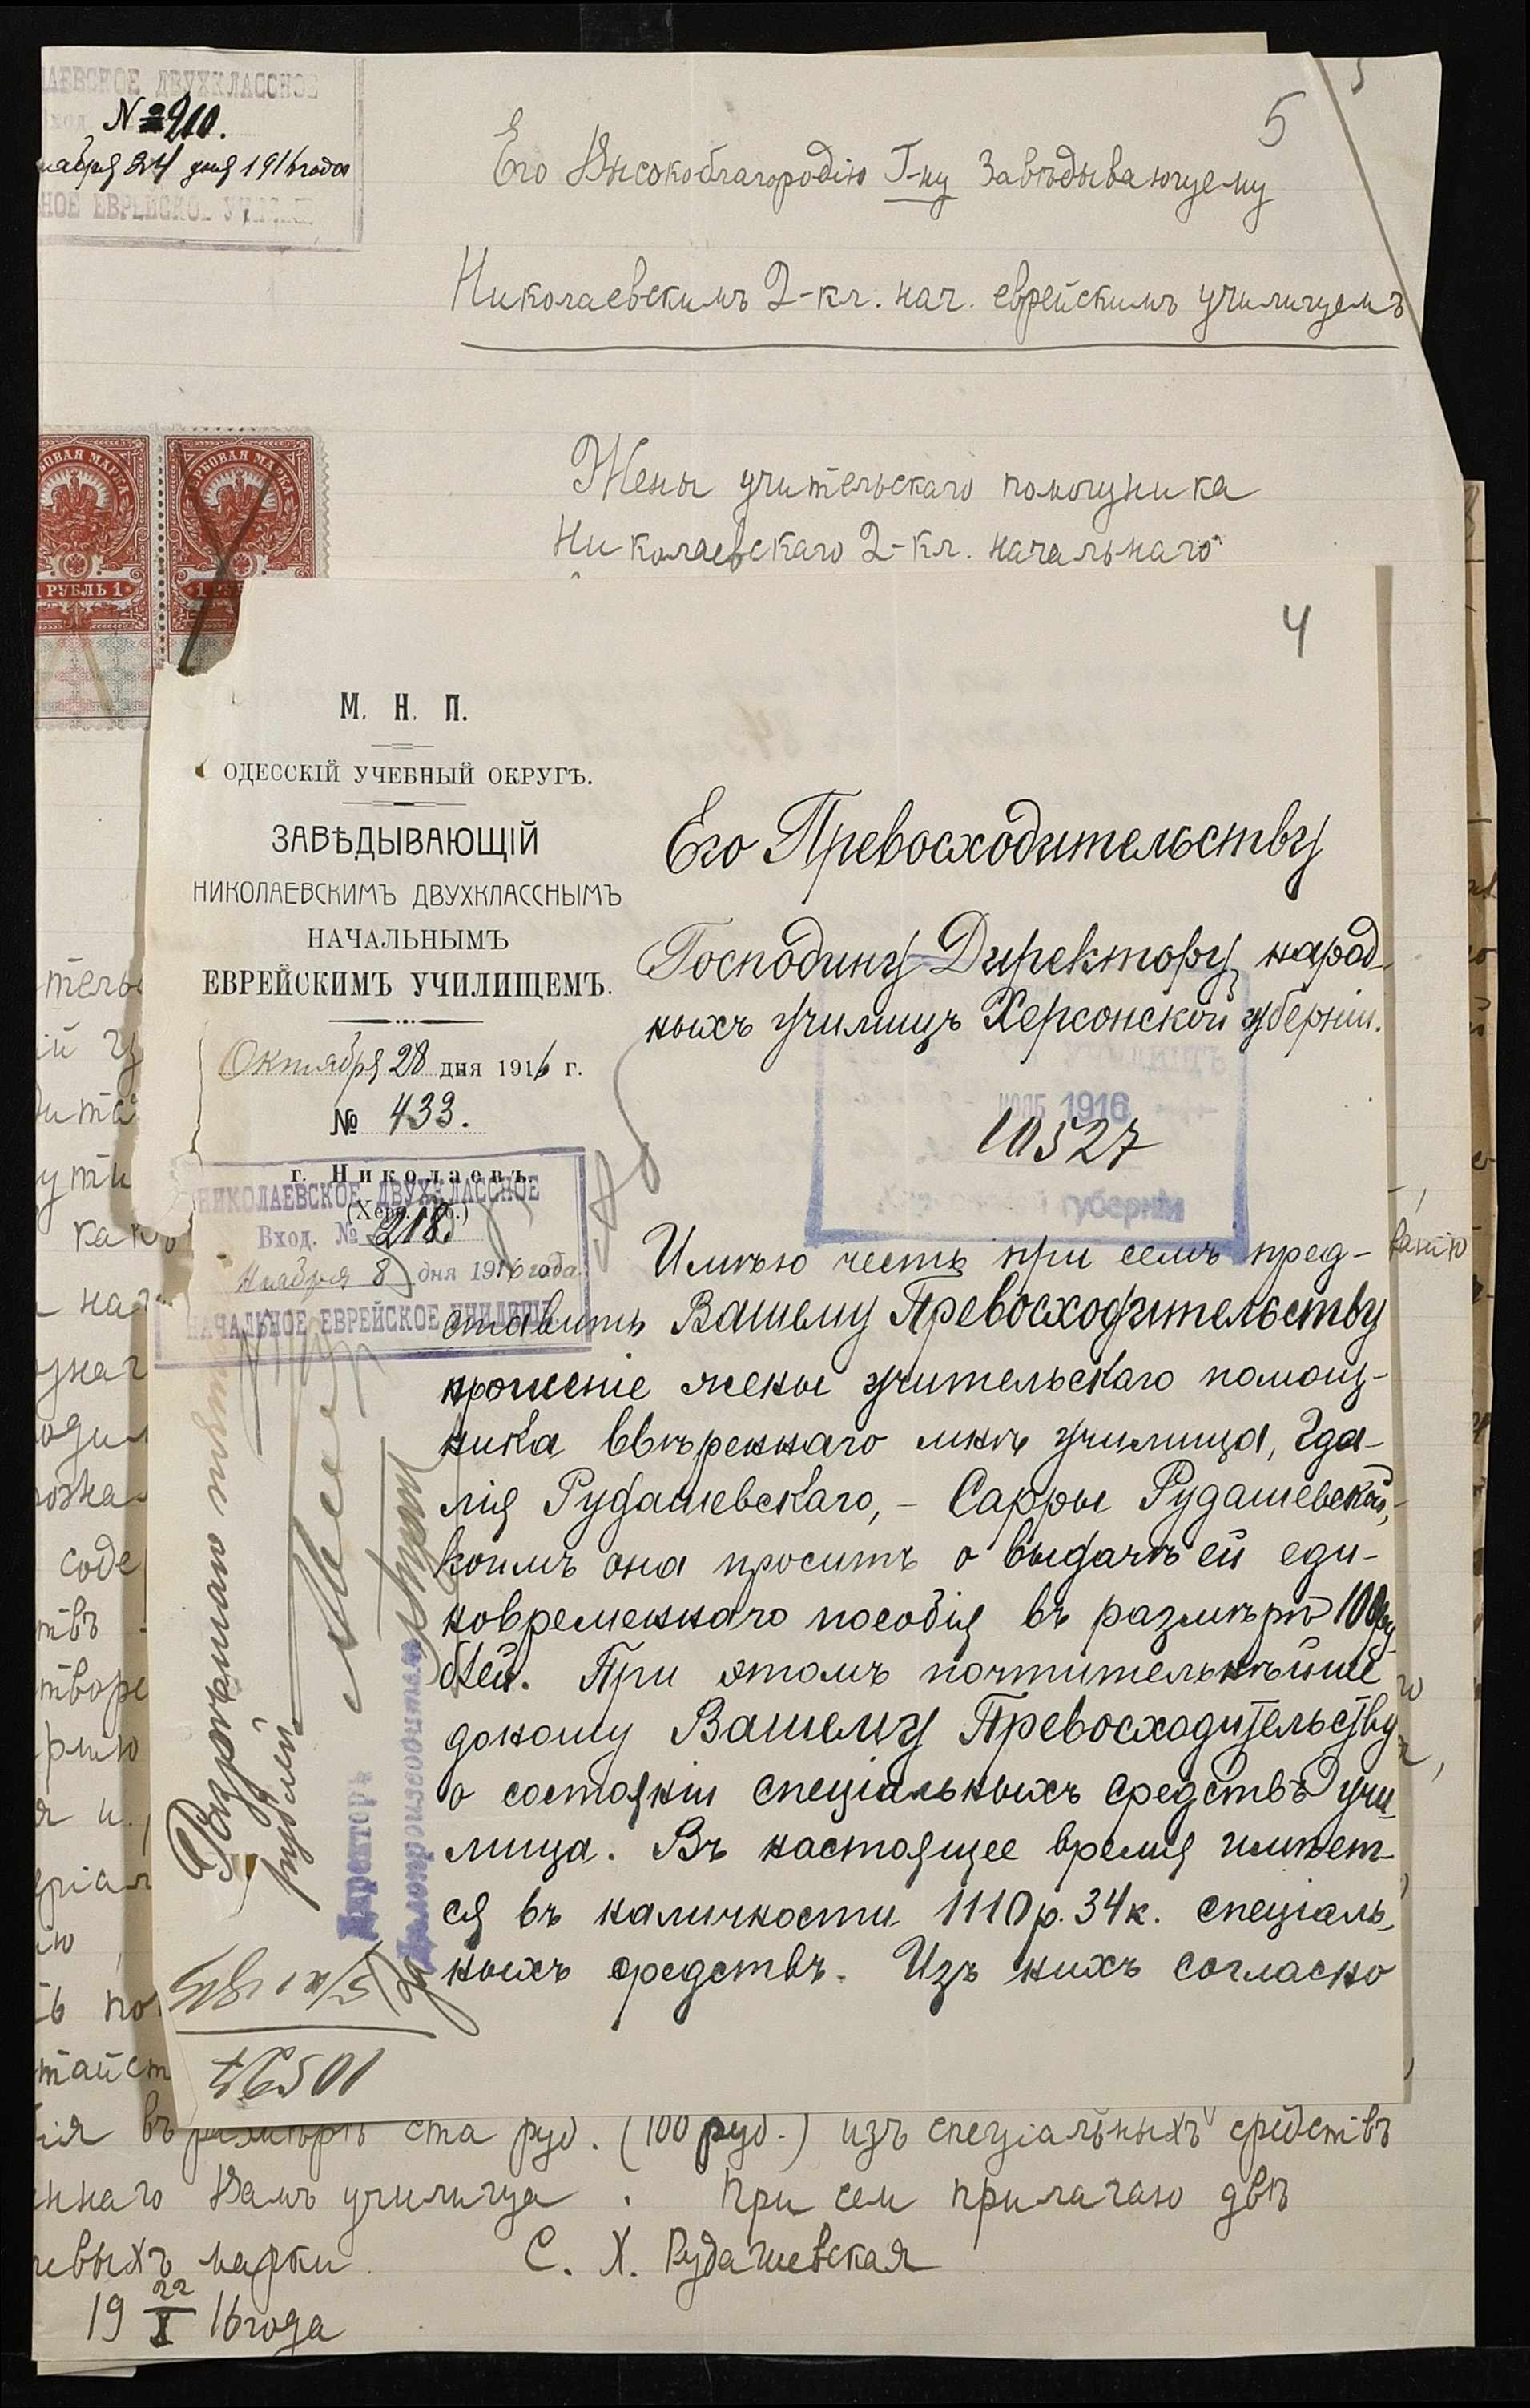 ЛАЕВСКОЕ ДВУХКЛАССНОЕ
№ 210.
24 дня 1916 года
НОЕ ЕВРЕЙСКОЕ
5
Его Высокоблагородію Г-ну Завѣдывающему
Николаевскимъ 2-кл. нач. еврейскимъ училищемъ
Жены учительскаго помощника
Николаевскаго 2-кл. начальнаго
БОВАЯ МАРКА
РБОВАЯ МАРКА
1 РУБЛЬ 1
1 РУБ
4
М. Н. П.
ОДЕССКІЙ УЧЕБНЫЙ ОКРУГЪ.
ЗАВѢДЫВАЮЩІЙ
НИКОЛАЕВСКИМЪ ДВУХКЛАССНЫМЪ
НАЧАЛЬНЫМЪ
ЕВРЕЙСКИМЪ УЧИЛИЩЕМЪ.
Октября 28 дня 1916 г.
№ 433.
г. Николаевъ.
(Херс. губ.)
НИКОЛАЕВСКОЕ ДВУХКЛАССНОЕ
Вход. № 218
Ноября 8 дня 1916 года
НАЧАЛЬНОЕ ЕВРЕЙСКОЕ УЧИЛИЩЕ
Его Превосходительству
Господину Директору народ-
ныхъ училищъ Херсонской губерніи.
НОЯБ 1916
10527
губерніи
Имѣю честь при семъ пред-
ставить Вашему Превосходительству
прошеніе жены учительскаго помощ-
ника ввѣреннаго мнѣ училища, Гда-
лія Рудашевскаго, - Сарры Рудашевской,
коимъ она проситъ о выдачѣ ей еди-
новременнаго пособія въ размѣрѣ 100 ру-
блей. При этомъ почтительнѣйше
доношу Вашему Превосходительству
о состояніи спеціальныхъ средствъ учи-
лища. Въ настоящее время имѣет-
ся въ наличности 1110 р. 34 к. спеціаль-
ныхъ средствъ. Изъ нихъ согласно
Разрѣшаю
рублей
Директоръ
Делопроизводитель
46501
тель
ій
ути
какъ
нач
знач
соде
твъ
творе
рію
я и
ріал
ію
тайст
ія въ размѣрѣ ста руб. (100 руб.) изъ спеціальныхъ средствъ
ннаго Вамъ училища. При сем прилагаю двѣ
евыхъ марки С. Х. Рудашевская
19 22/X 16 года